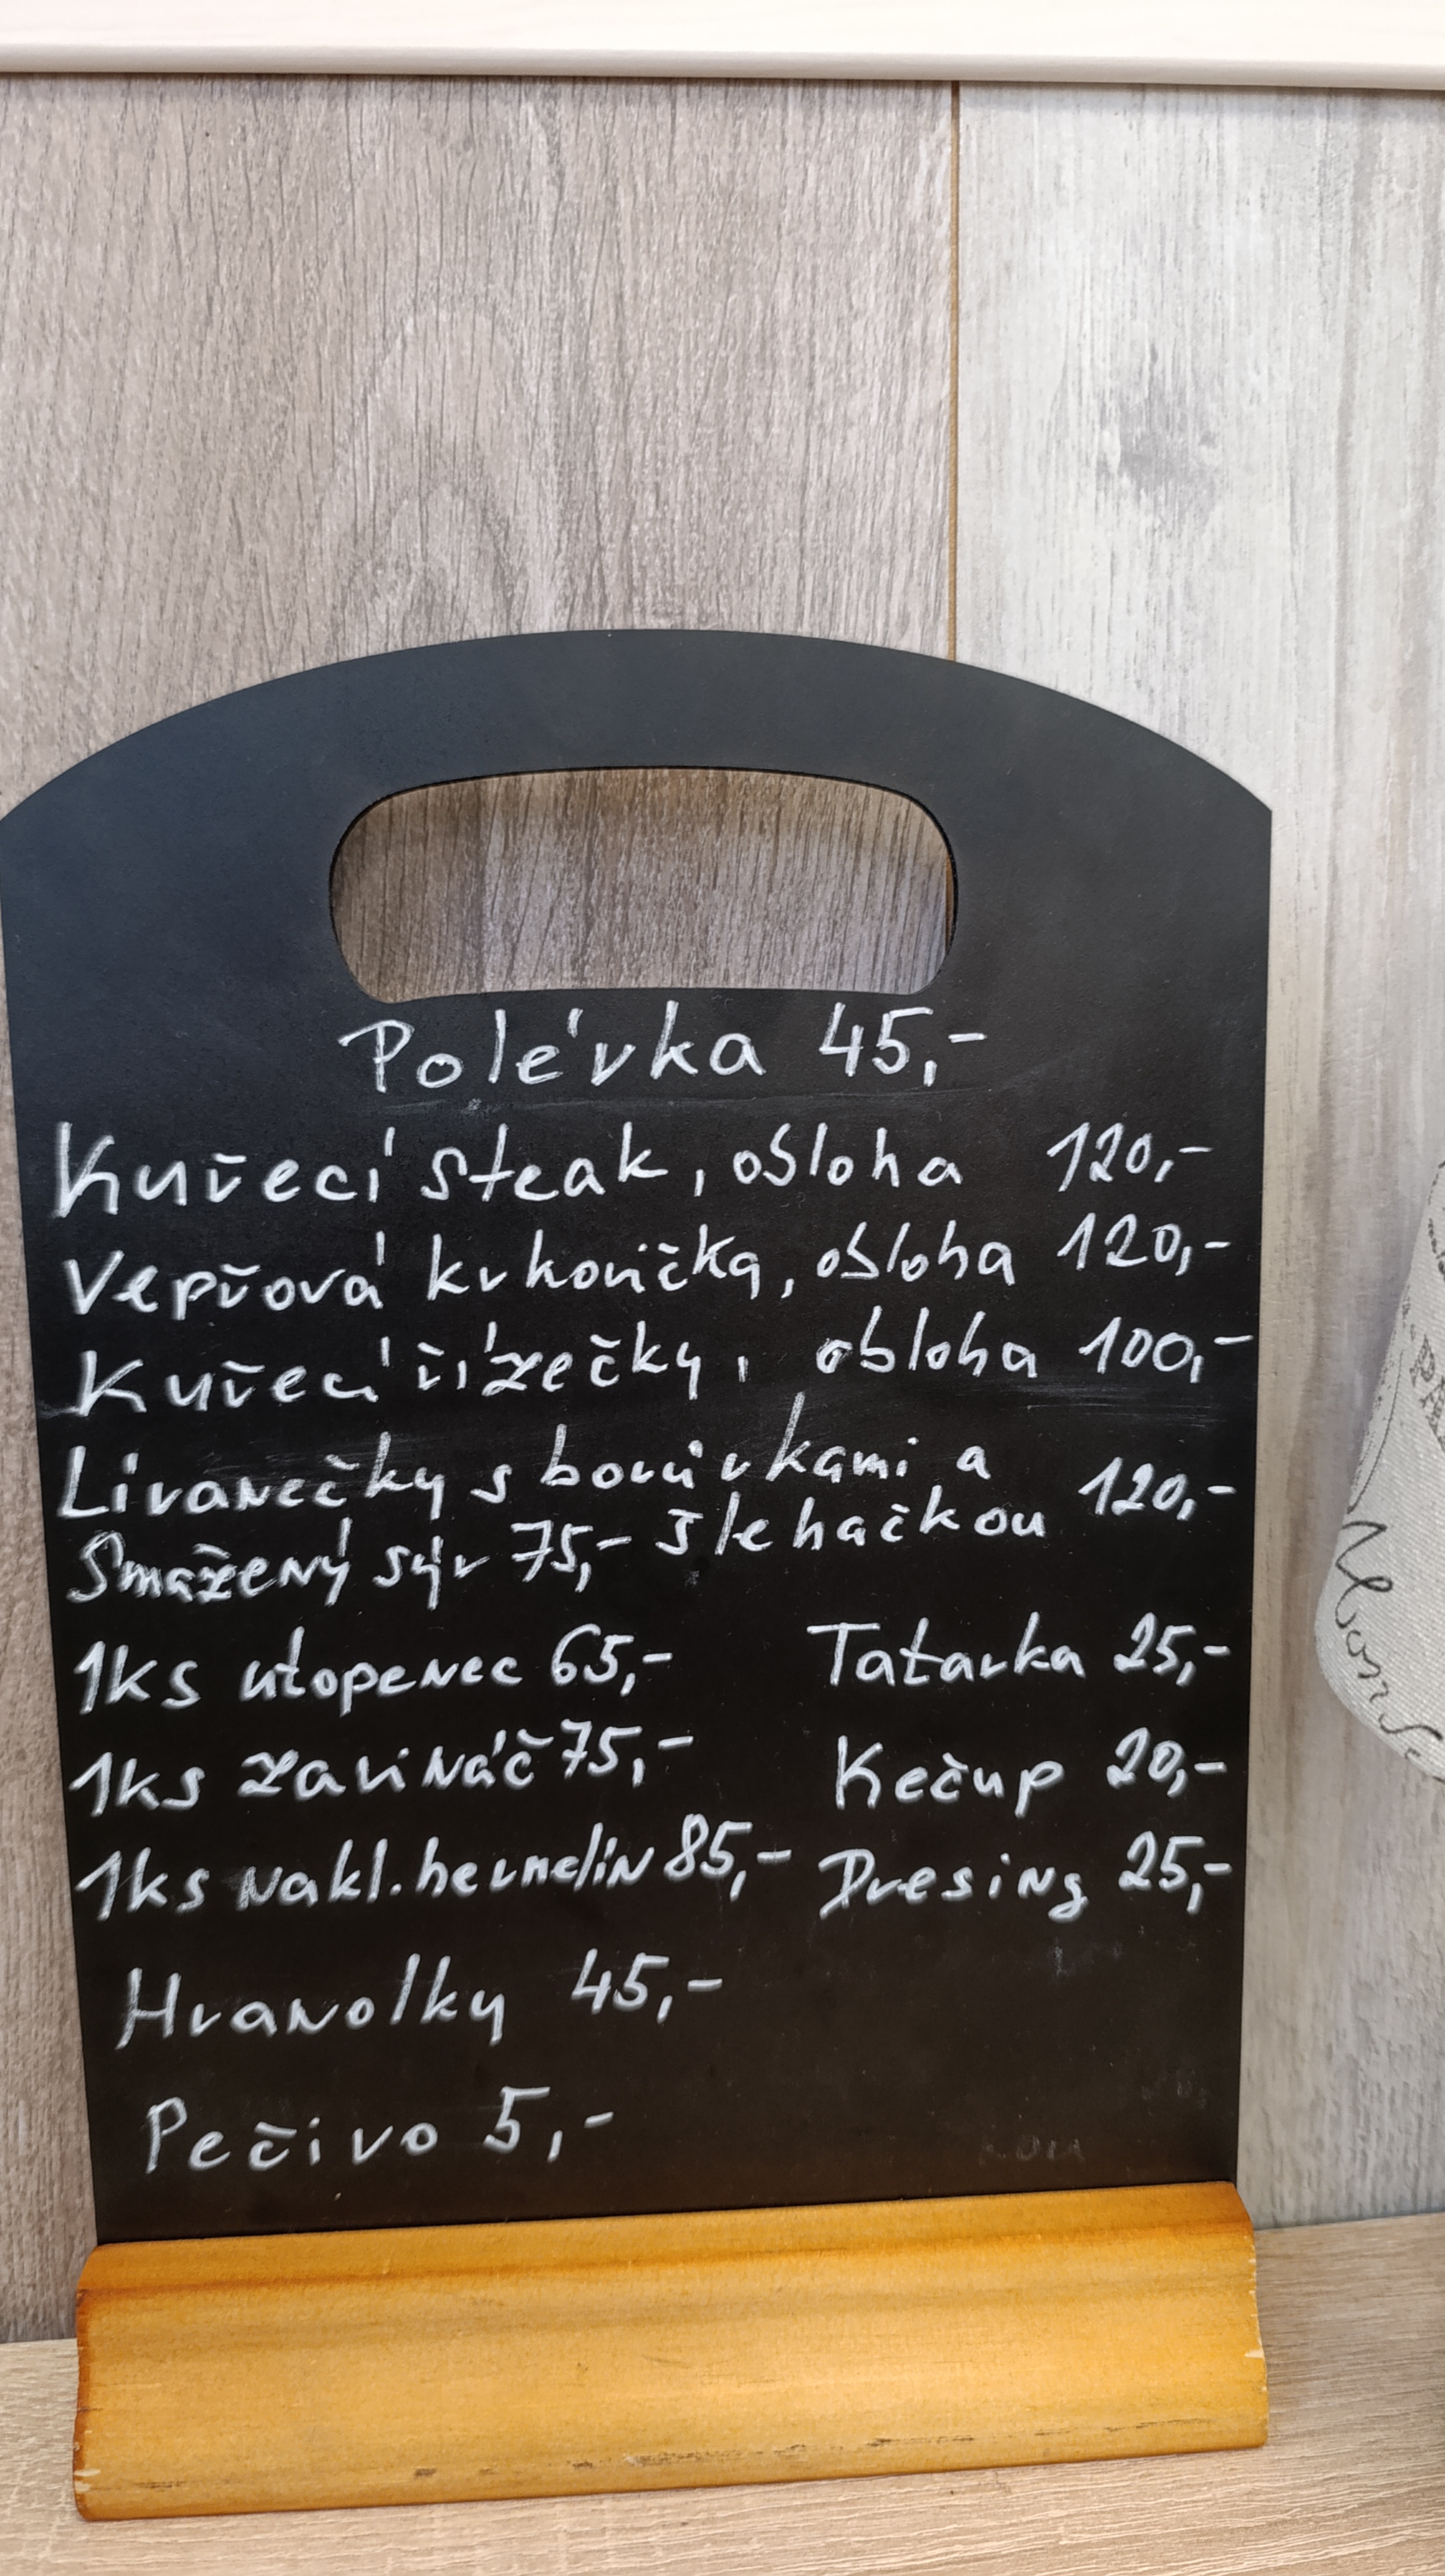 Polévka 45,-
Kuřecí steak, obloha 120,-
Vepřová krkovička, obloha 120,-
Kuřecí řízečky, obloha 100,-
Livanečky s borůvkami a
šlehačkou 120,-
Smažený sýr 75,-
1ks utopenec 65,- Tatarka 25,-
1ks zavináč 75,- Kečup 20,-
1ks nakl. hermelín 85,- Dresing 25,-
Hranolky 45,-
Pečivo 5,-